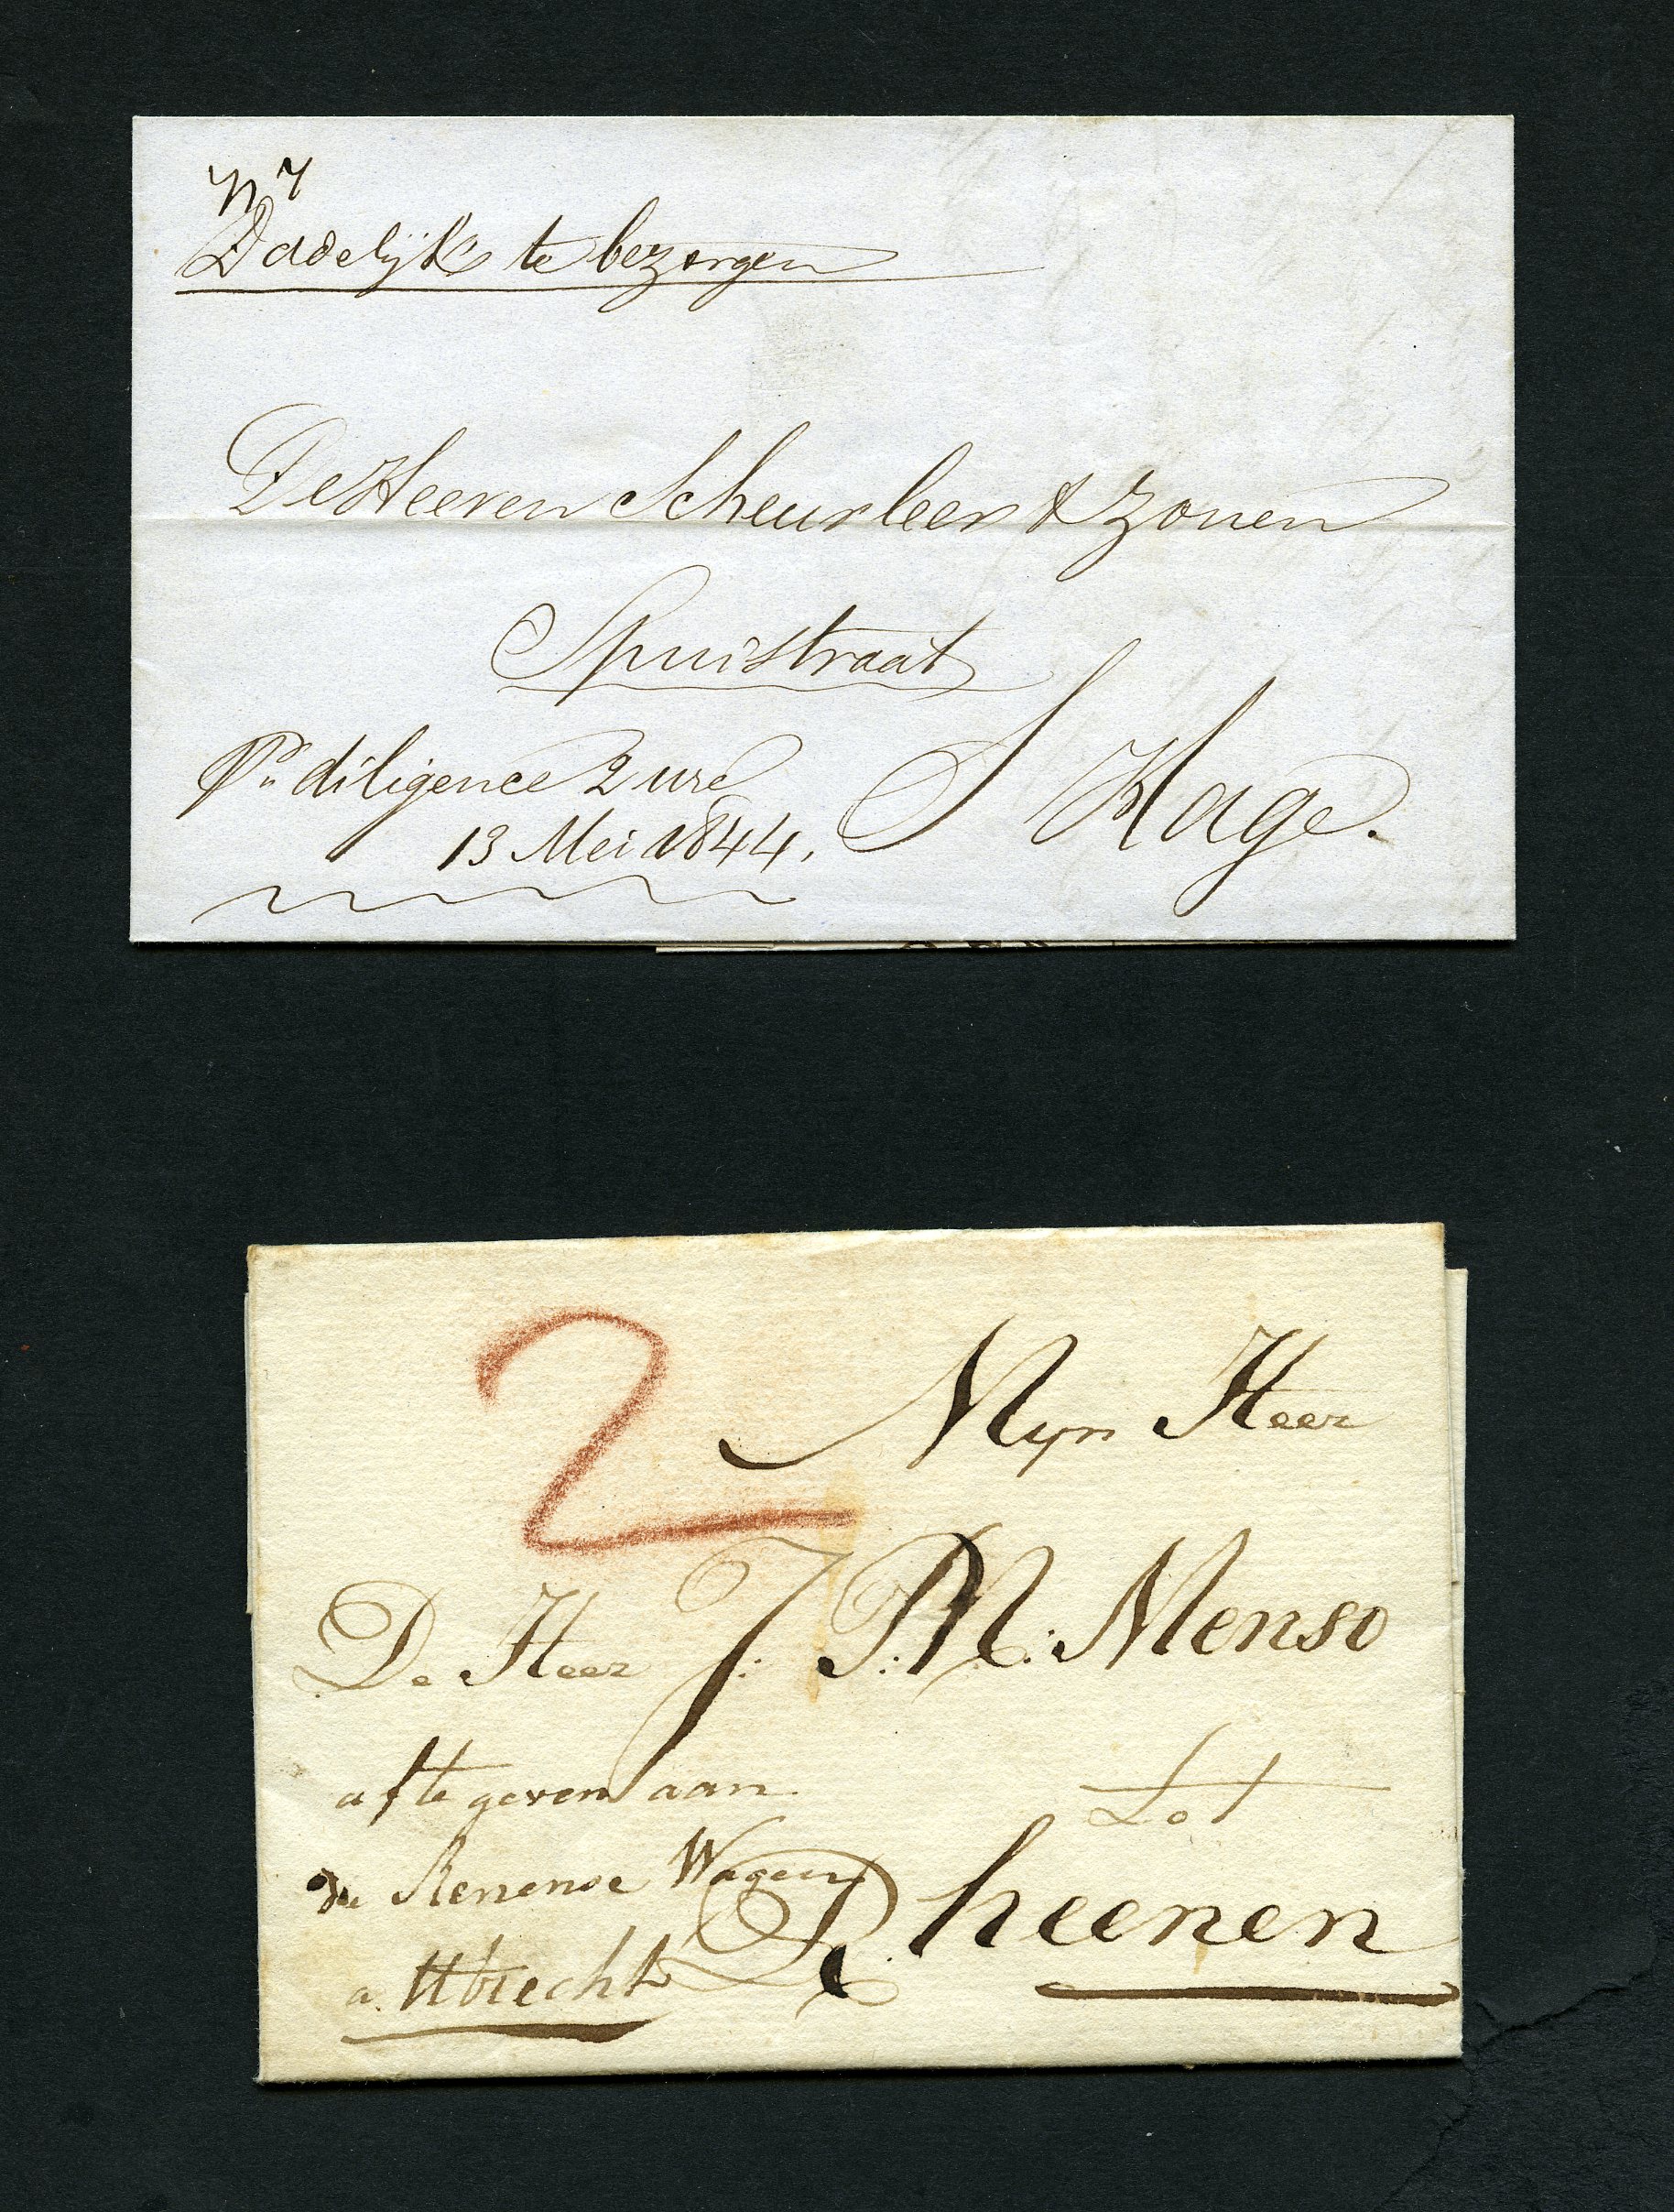 N 7
Dadelijk te bezorgen
De Heeren Scheurleer & Zonen
Spuistraat
Pr. diligence 2 ure
13 Mei 1844.
S Hage.
2
Mijn Heer
De Heer J: P: M: Menso
af te geven aan
Tot
de Renense Wagen
Rheenen
a. Utrecht